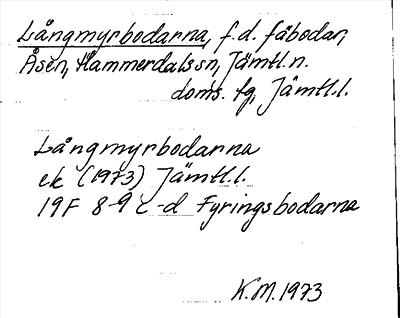 Långmyrbodarna, f.d. fäbodar,
Åsen, Hammerdals sn, Jämtl. n.
doms. fg, Jämtl. l.
Långmyrbodarna
ek (1973) Jämtl. l.
19F 8-9 c-d Fyringsbodarna
K.M. 1973